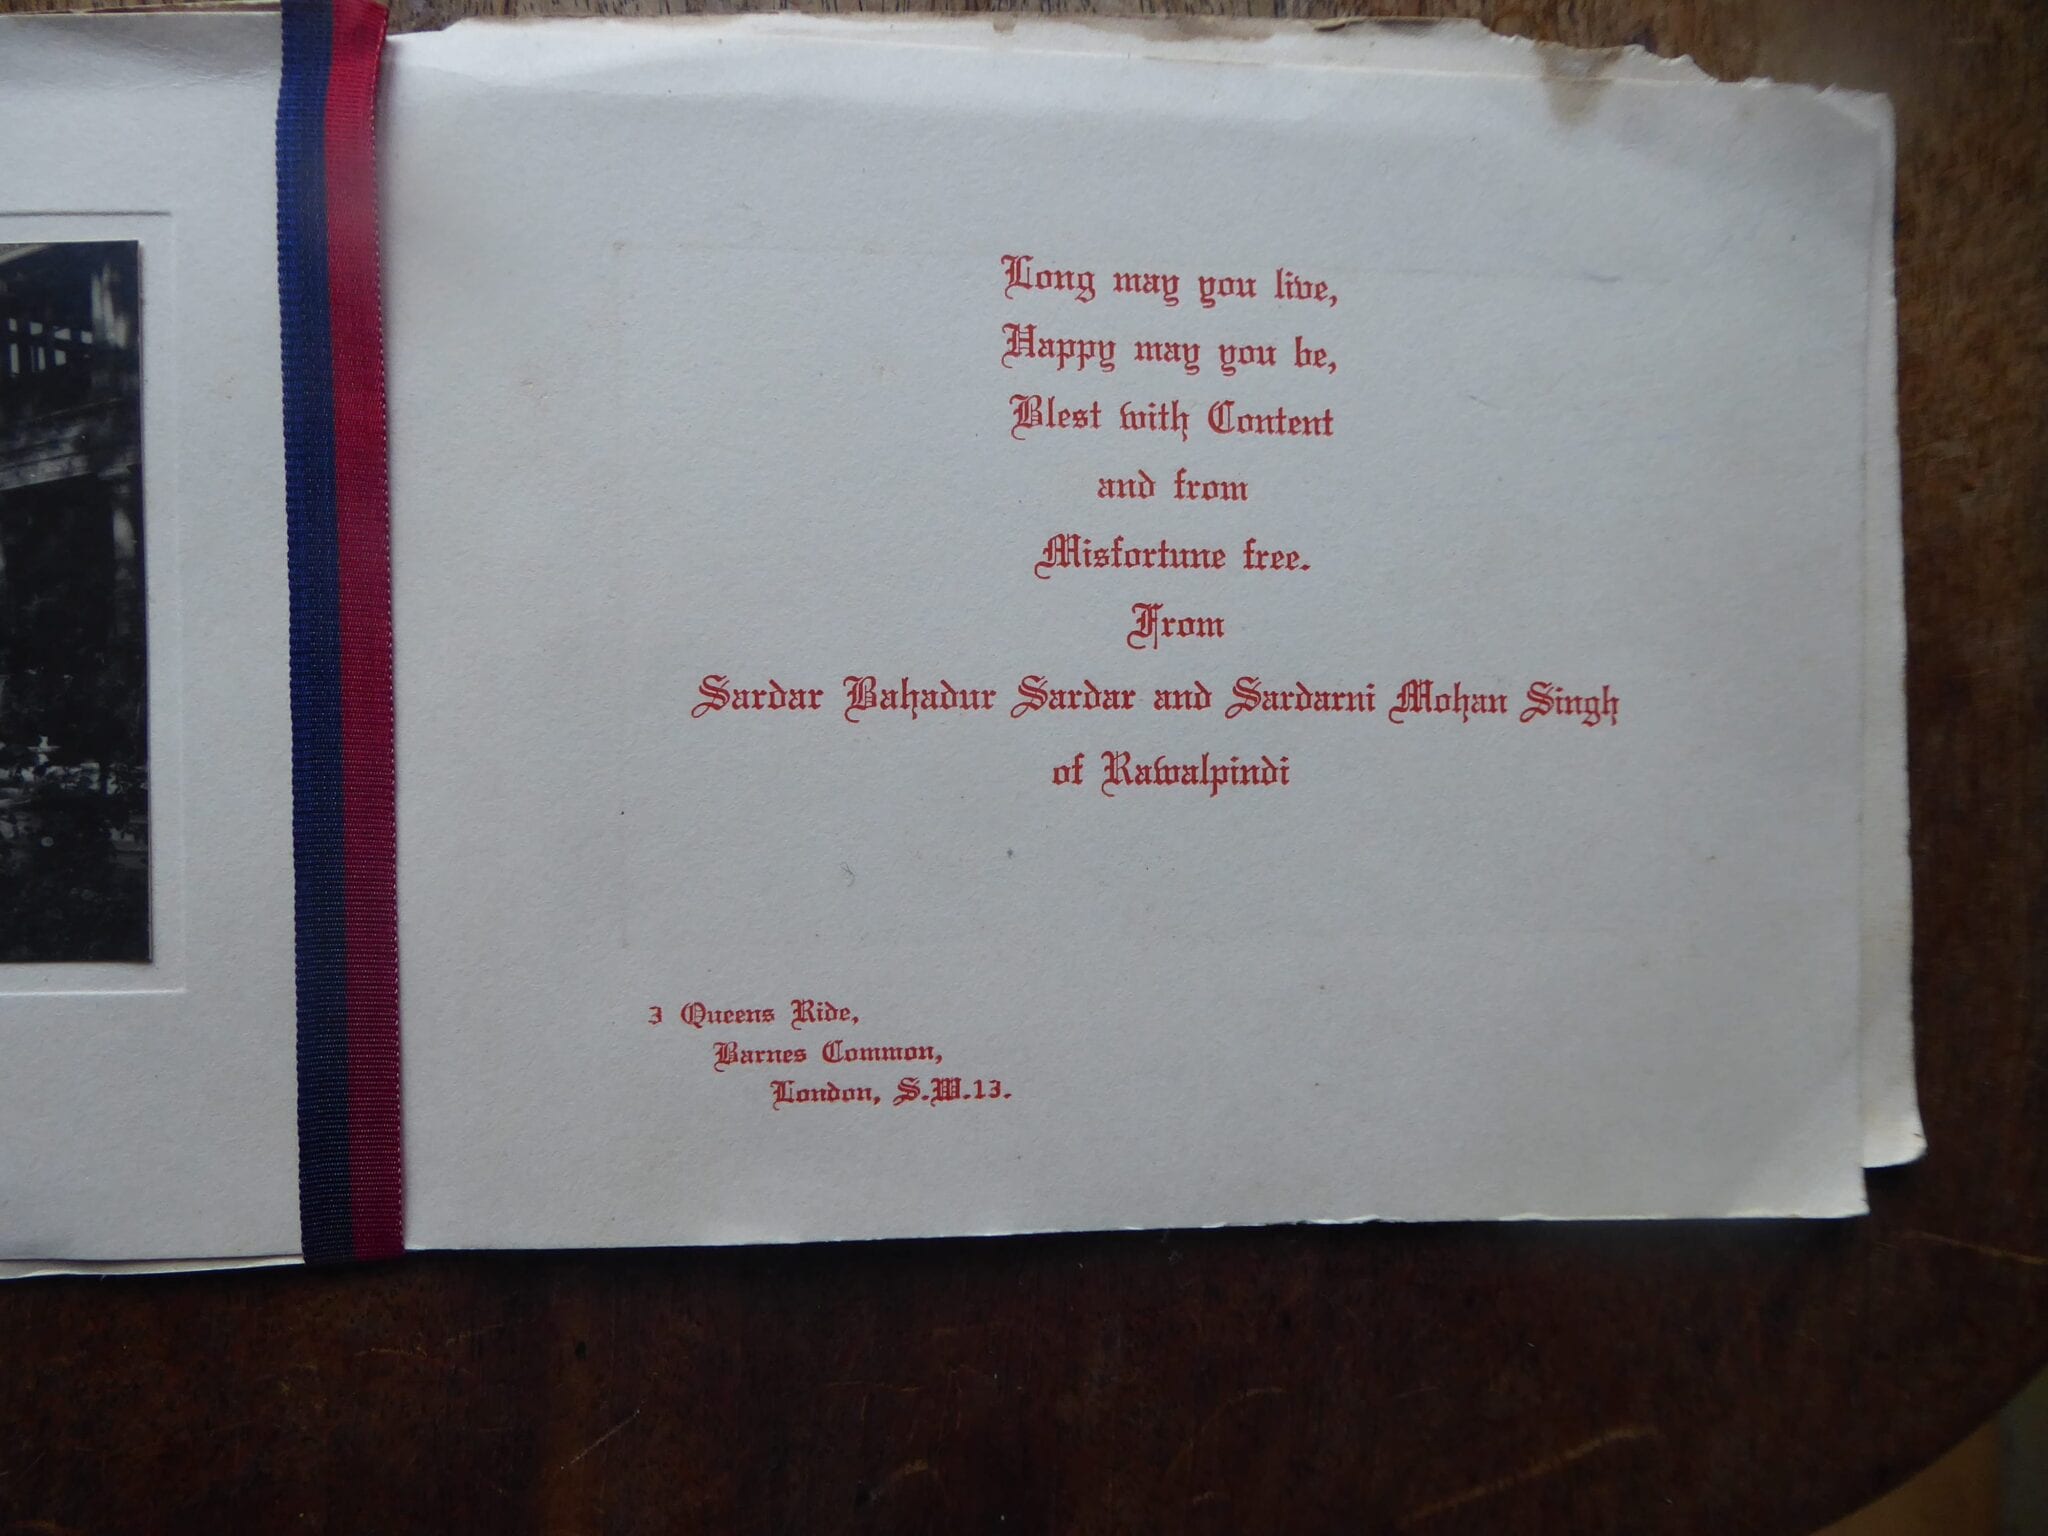 Long may you live,
Happy may you be,
Blest with Content
and from
Misfortune free.
From
Sardar Bahadur Sardar and Sardarni Mohan Singh
of Rawalpindi
3 Queens Ride,
Barnes Common,
London, S.W.13.